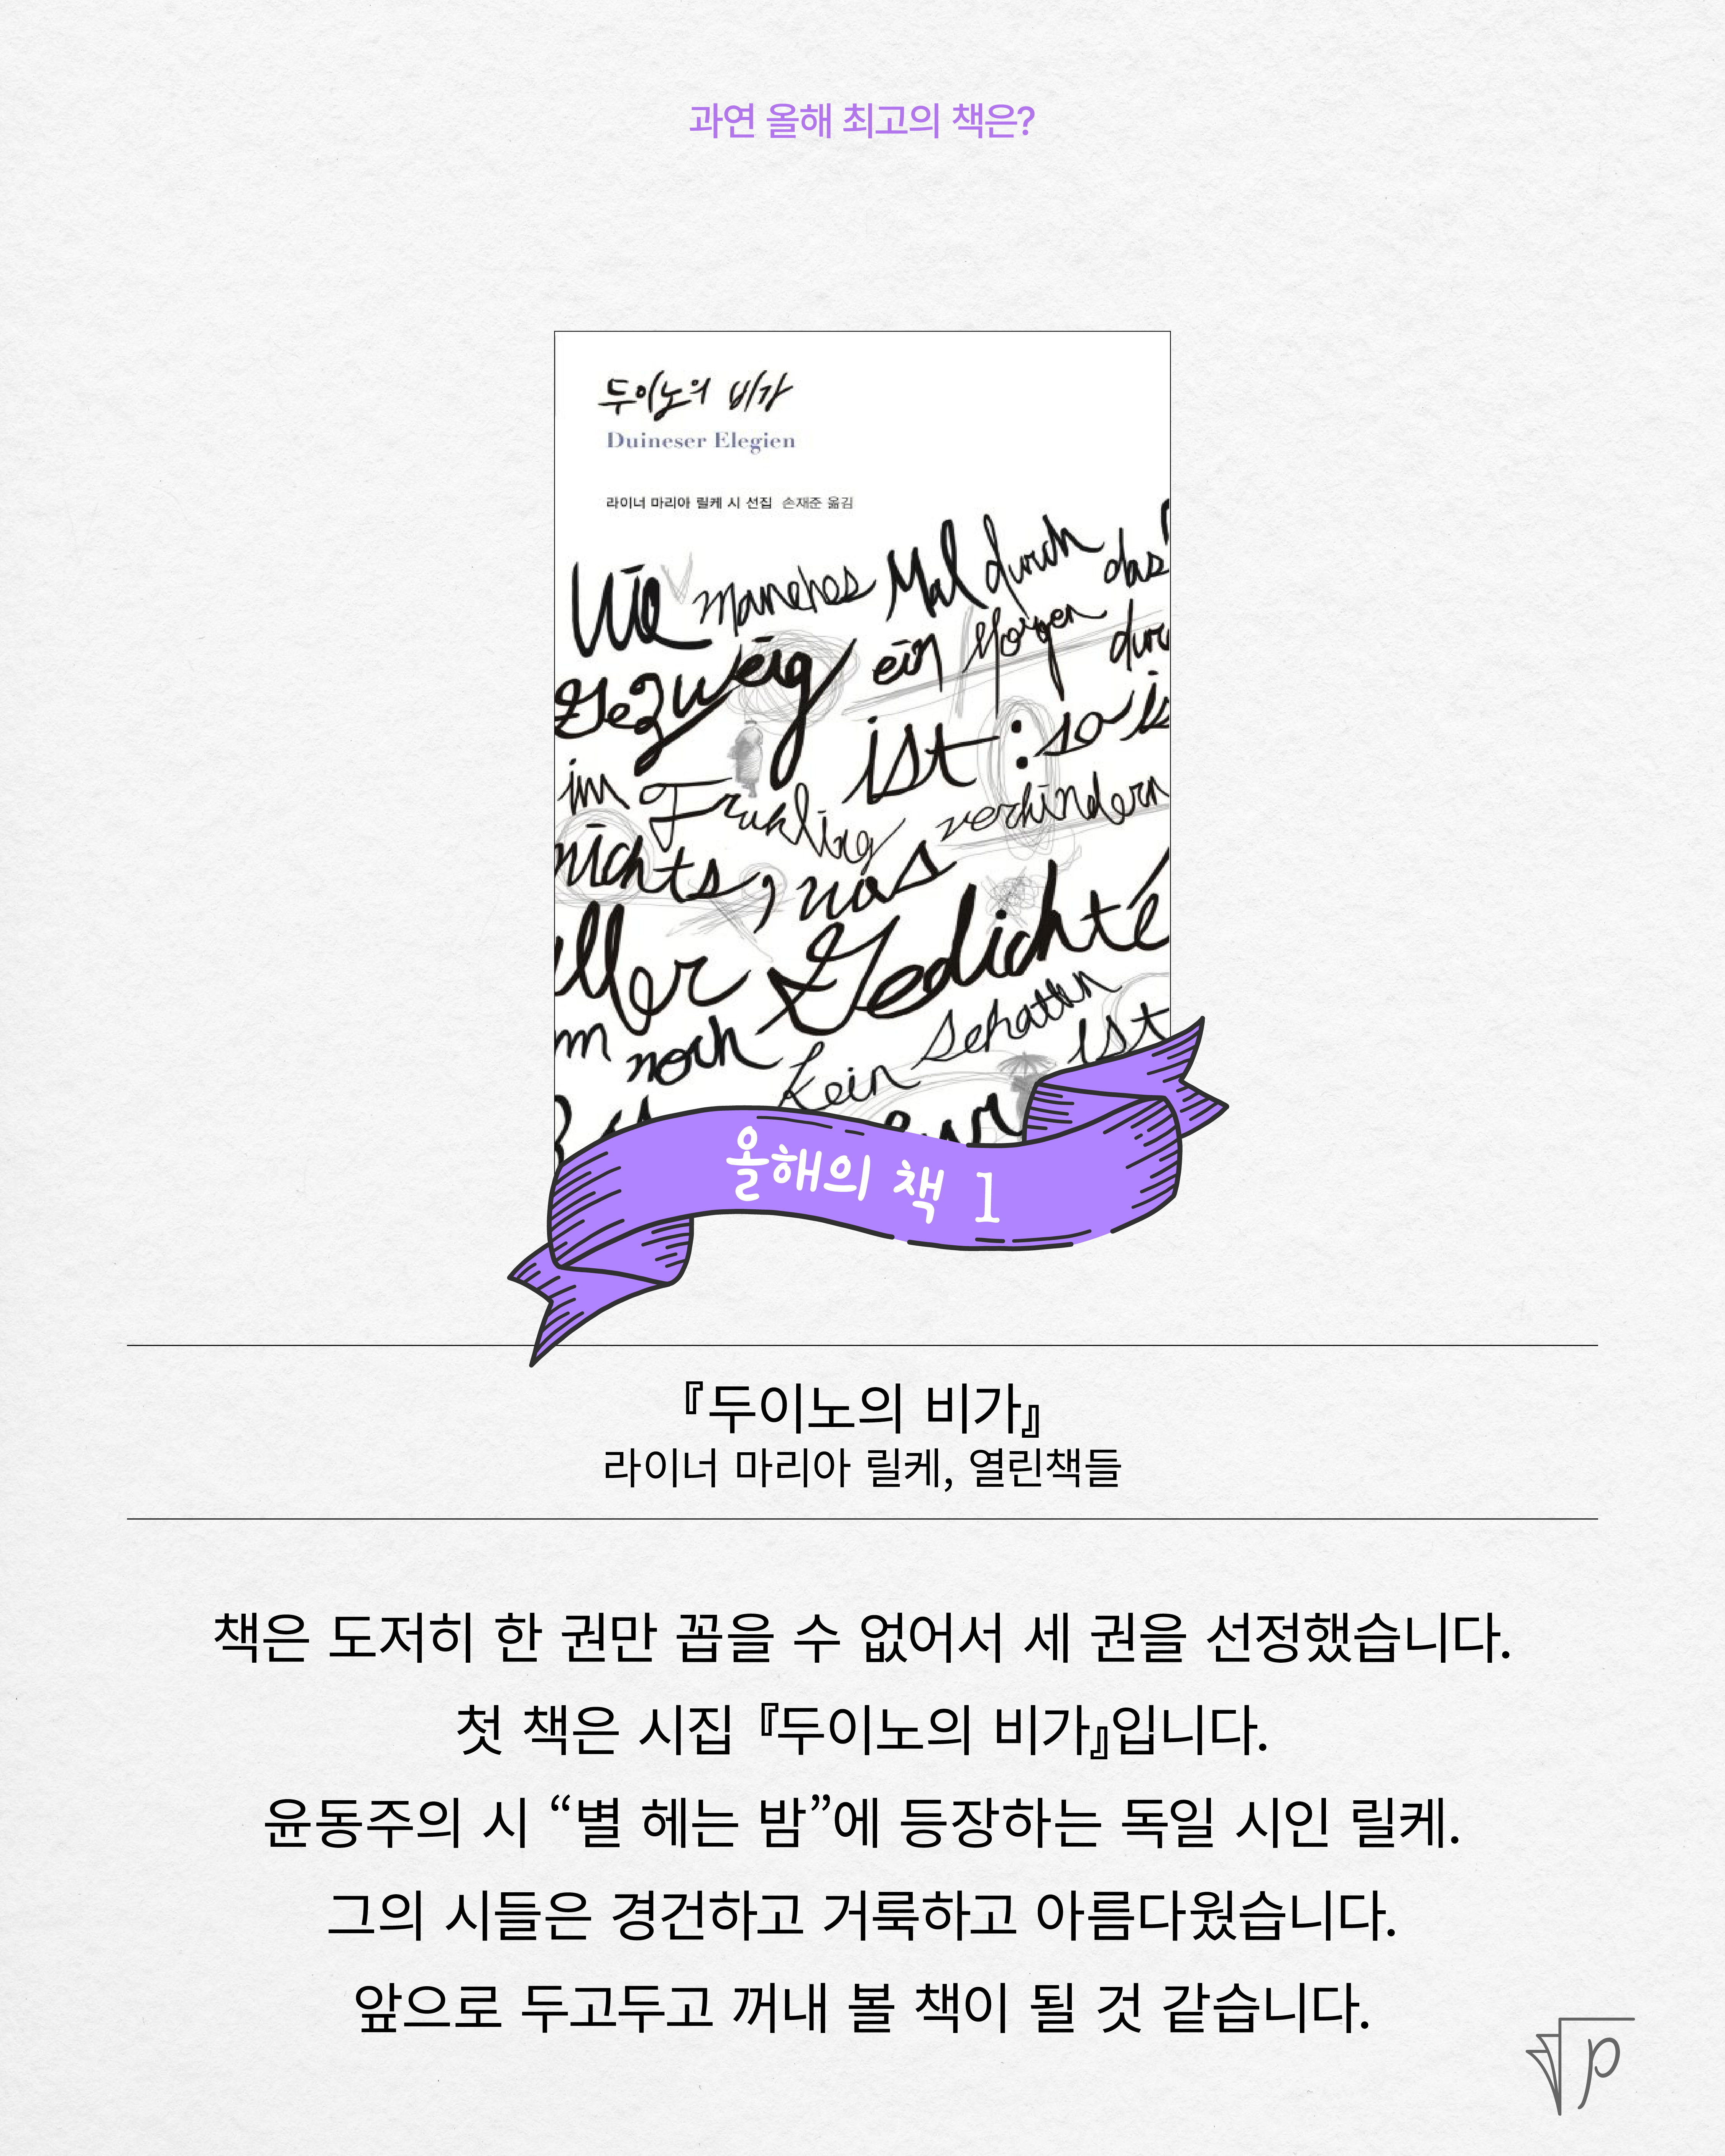 과연 올해 최고의 책은?
두이노의 비가
Duineser Elegien
라이너 마리아 릴케 시 선집 손재준 옮김
Wie manches Mal durch das
Gezweig ein Morgen durc
ist: so is
im Fruhling verhindern
nichts, was
aller Gedichte
m noch kein Schatten ist
올해의 책 1
『두이노의 비가』
라이너 마리아 릴케, 열린책들
책은 도저히 한 권만 꼽을 수 없어서 세 권을 선정했습니다.
첫 책은 시집 『두이노의 비가』입니다.
윤동주의 시 “별 헤는 밤”에 등장하는 독일 시인 릴케.
그의 시들은 경건하고 거룩하고 아름다웠습니다.
앞으로 두고두고 꺼내 볼 책이 될 것 같습니다.
p